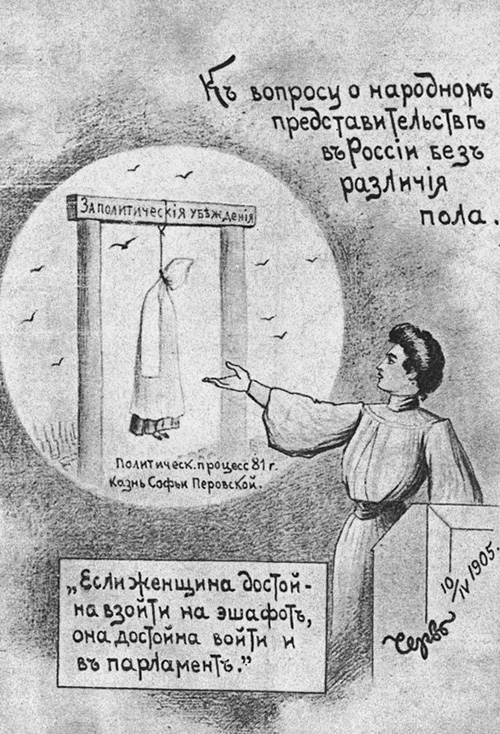 Къ вопросу о народномъ
представительствѣ
въ Россіи безъ
различія
пола.
За политическія убѣжденія
Политическ. процесс 81 г.
Казнь Софьи Перовской.
„Если женщина достой-
на взойти на эшафотъ,
она достойна войти и
въ парламентъ."
10/IV 1905.
Червь